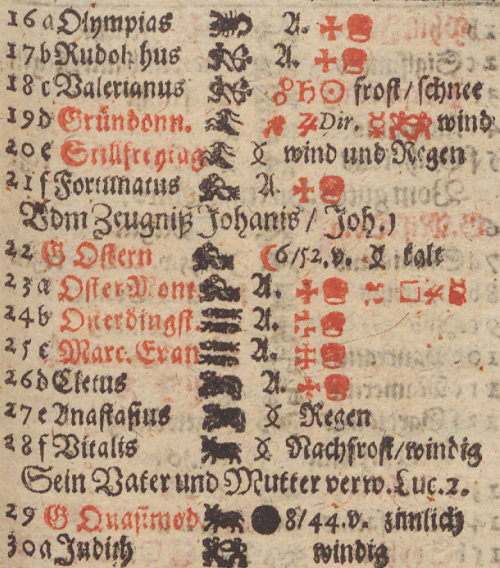 16 a Olympias A.
17 b Rudolphus A.
18 c Valerianus ☍ ♄ ☉ frost/ schnee
19 d Gründonn. ♃ Dir. ☿ wind
20 e Stillfreytag wind und Regen
21 f Fortunatus A.
Vom Zeugniß Johanis / Joh. 1
22 G Ostern ☾ 6/52. v. kalt
23 a Oster Mont. A. □ ♃ ☿
24 b Osterdingst. A.
25 c Marc. Evan A.
26 d Cletus A.
27 e Anastasius Regen
28 f Vitalis Nachfrost/windig
Sein Vater und Mutter verw. Luc. 2.
29 G Quasimod ● 8/44. v. zimlich
30 a Judith windig